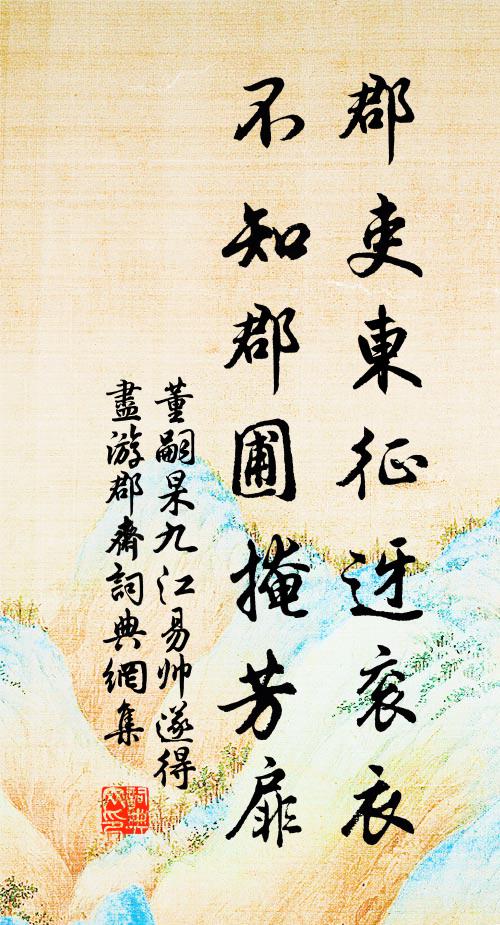 郡吏東征迓衮衣
不知郡圃掩芳扉
董嗣杲九江易帅遂得
盡游郡齋詞典網集